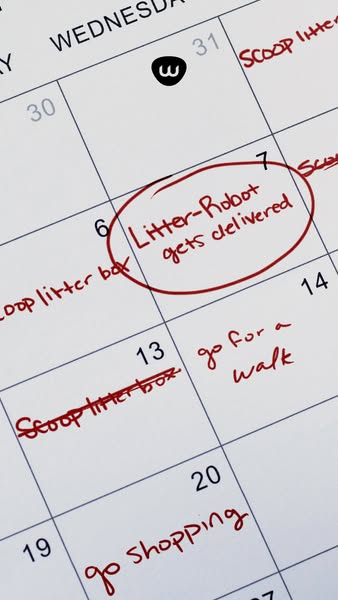 WEDNESDA
AY
30
31
w
Scoop litter
6
7
Litter-Robot
gets delivered
Scoo
coop litter box
13
14
Scoop litter box
go for a
walk
19
20
go shopping
27